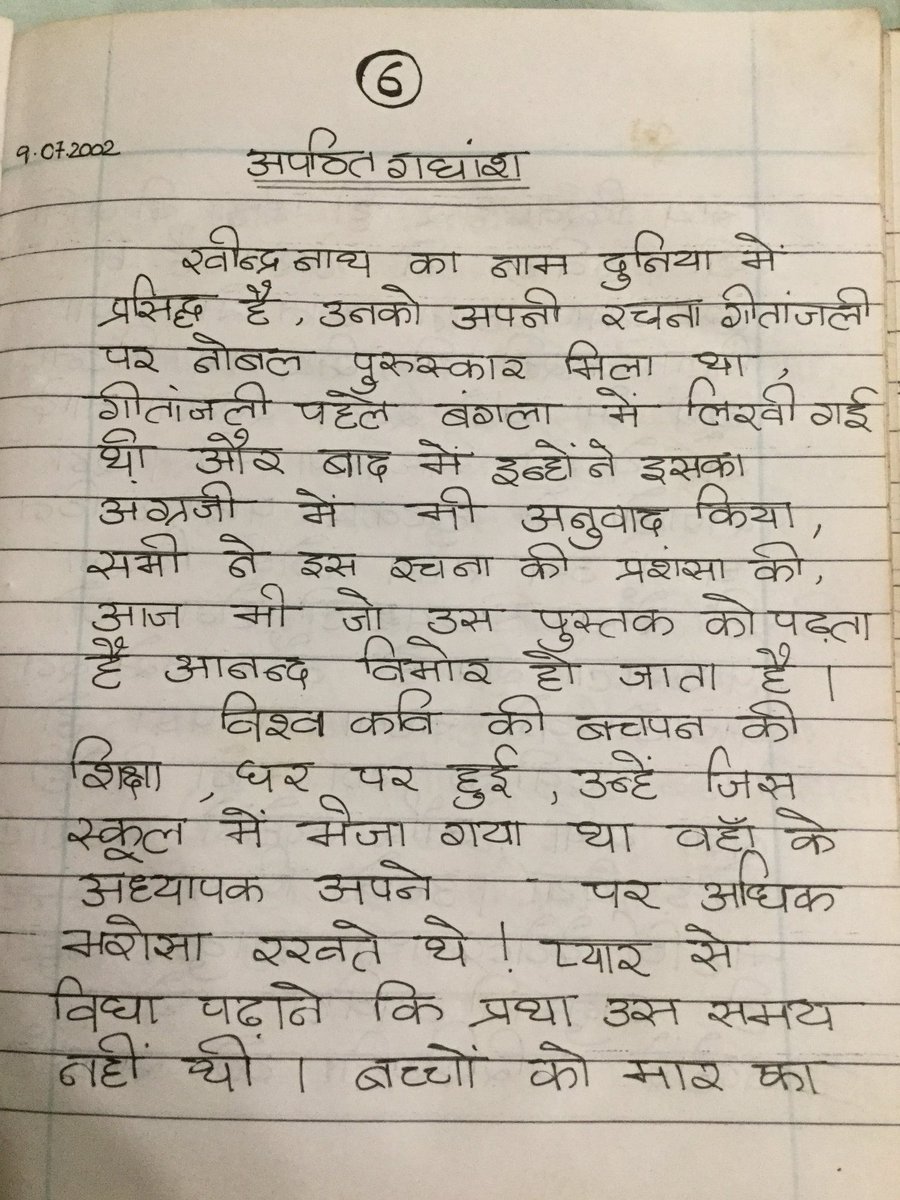 6
9.07.2002
अपठित गद्यांश
रवीन्द्र नाथ का नाम दुनिया में
प्रसिद्ध है, उनको अपनी रचना गीतांजली
पर नोबल पुरुस्कार मिला था,
गीतांजली पहले बंगला में लिखी गई
थी और बाद में इन्होंने इसका
अग्रजी में भी अनुवाद किया,
सभी ने इस रचना की प्रशंसा की,
आज भी जो उस पुस्तक को पढ़ता
है आनन्द विभोर हो जाता है।
विश्व कवि की बचपन की
शिक्षा, घर पर हुई, उन्हें जिस
स्कूल में भेजा गया था वहाँ के
अध्यापक अपने पर अधिक
भरोसा रखते थे! प्यार से
विद्या पढ़ाने कि प्रथा उस समय
नहीं थीं। बच्चों को मार का